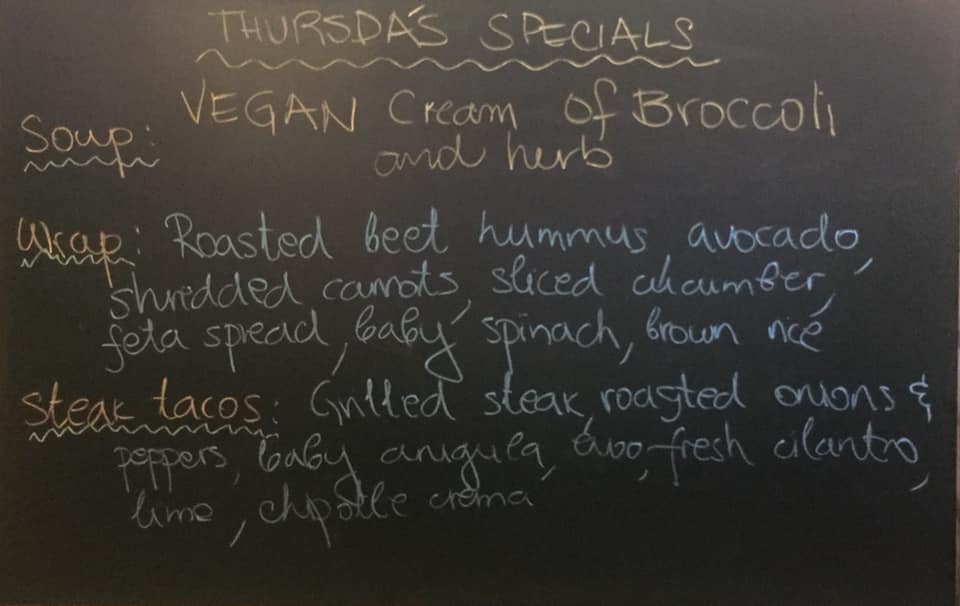 THURSDA'S SPECIALS
Soup: VEGAN Cream of Broccoli
and herb
Wrap: Roasted beet hummus, avocado,
shredded carrots, sliced cucumber,
feta spread, baby spinach, brown rice
Steak tacos: Grilled steak, roasted onions &
peppers, baby arugula, avo, fresh cilantro,
lime, chipotle crema